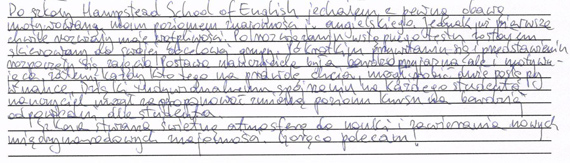 Do szkoły Hampstead School of English jechałem z pewną obawą
motywowaną moim poziomem znajomości j. angielskiego. Jednak już pierwsze
chwile rozwiały moje wątpliwości. Po rozwiązanym wstępnie teście zostałem
skierowany do swojej docelowej grupy. Po krótkim przywitaniu się i przedstawieniu
rozpoczęły się zajęcia. Postawa nauczyciela była bardzo przyjazna ale i motywu-
jąca, zatem każdy kto tego na prawdę chciał, mógł robić duże postępy
w nauce. Dzięki indywidualnemu spojrzeniu na każdego studenta
nauczyciel mógł zaproponować zmianę poziomu kursu na bardziej
odpowiedni dla studenta.
Szkoła stwarza świetną atmosferę do nauki i zawierania nowych
międzynarodowych znajomości. Gorąco polecam!